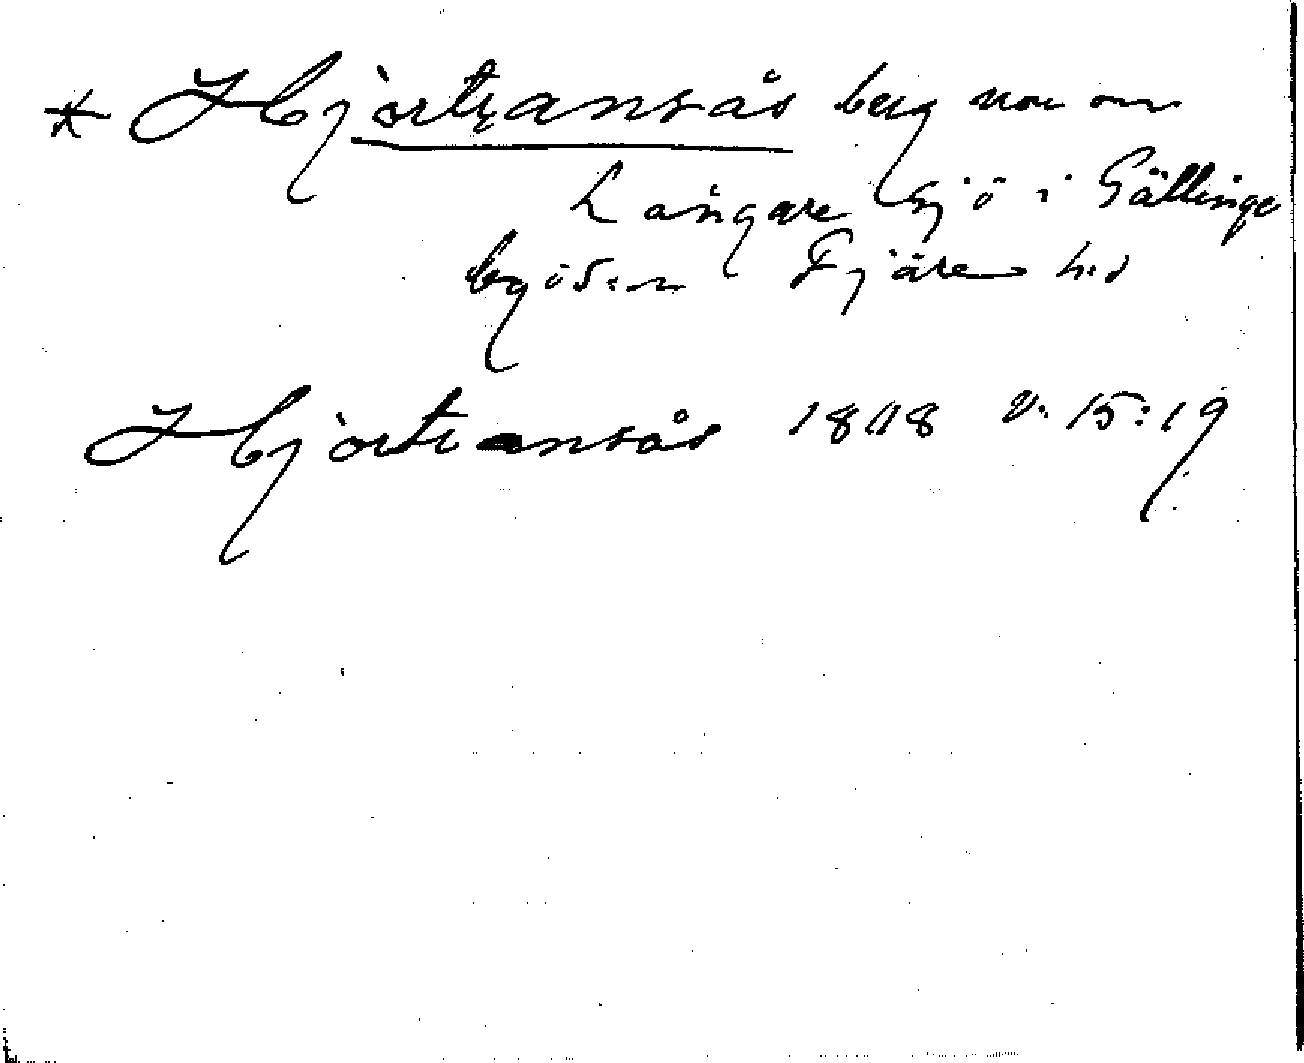 * Hjortransås berg norr om
Långare sjö i Gällinge
by ö sn Fjäre hd
Hjortransås 1818 v. 15:19